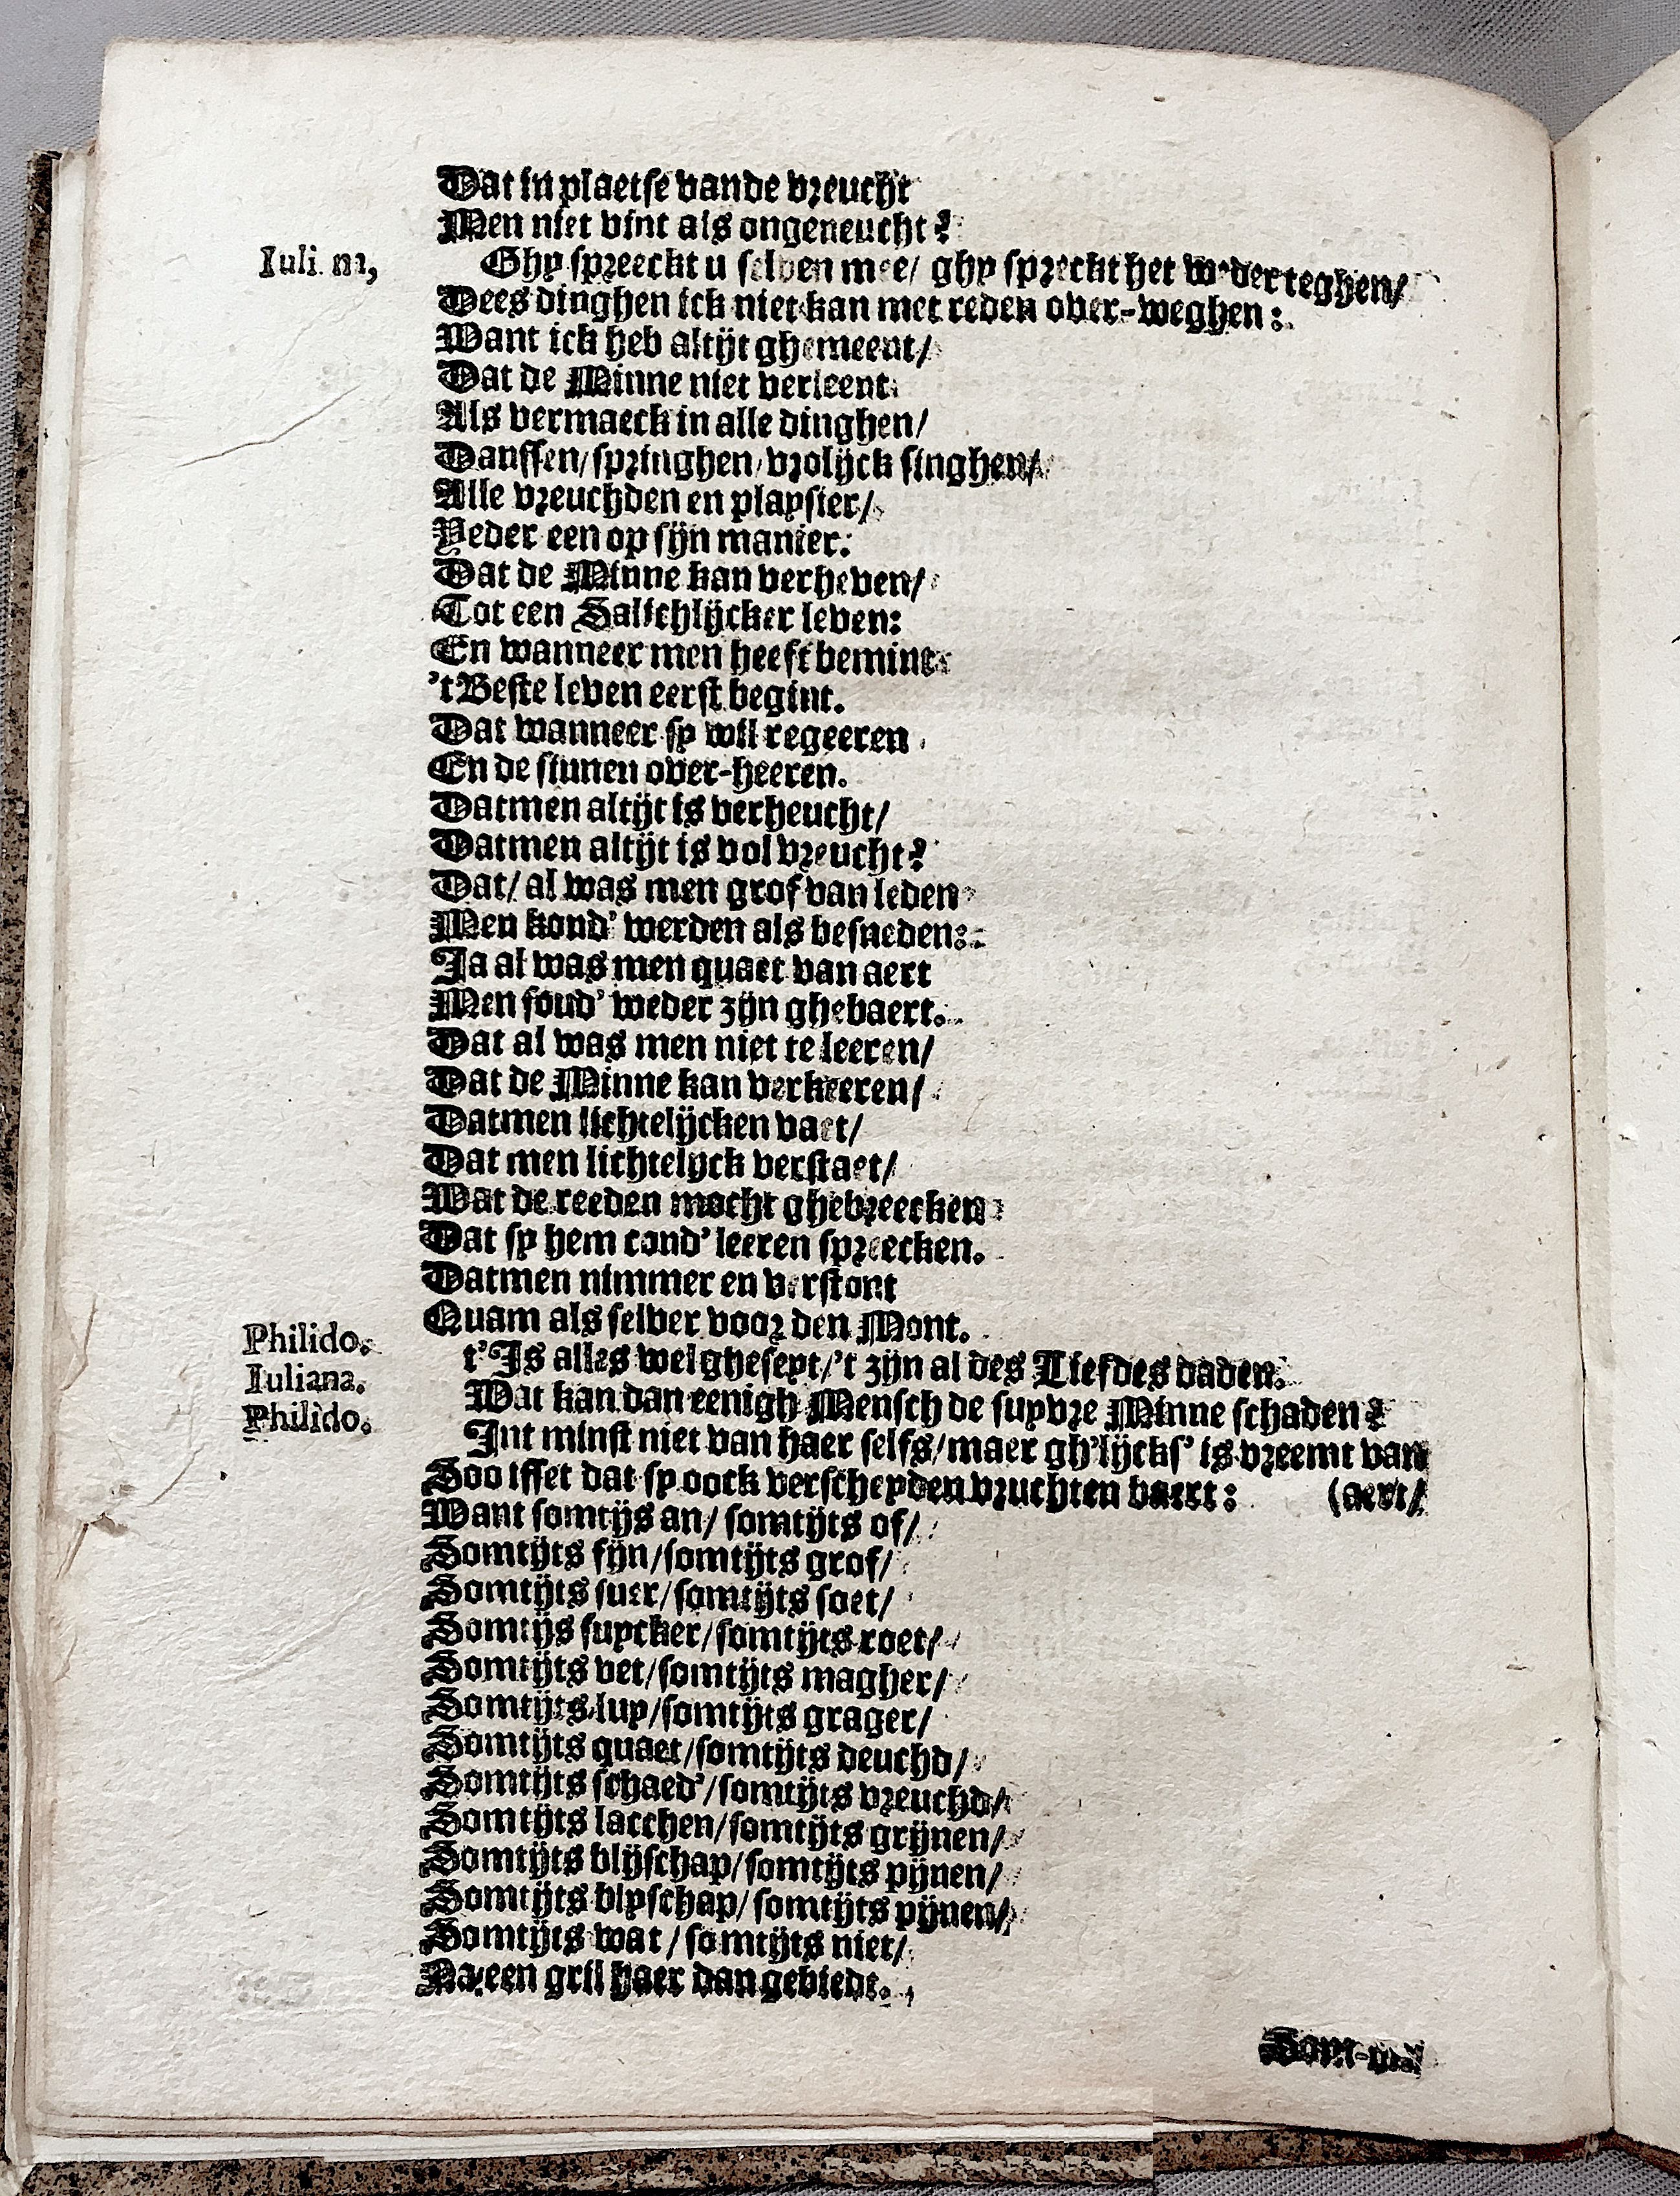 Dat in plaetse vande vreucht
Men niet vint als ongeneucht?
Iuli na, Ghy spreeckt u selven mee/ ghy spreckt het weder teghen/
Dees dinghen ick niet kan met reden over-weghen:
Want ick heb altijt ghemeent/
Dat de Minne niet verleent
Als vermaeck in alle dinghen/
Danssen/ springhen/ vrolijck singhen/
Alle vreuchden en playsier/
Yeder een op sijn manier:
Dat de Minne kan verheven/
Tot een Salichlijcker leven:
En wanneer men heeft bemint
't Beste leven eerst begint.
Dat wanneer sy wil regeeren
En de sinnen over-heeren.
Datmen altijt is verheucht/
Datmen altijt is vol vreucht?
Dat/ al was men grof van leden
Men kond' werden als besneden:
Ja al was men quaet van aert
Men soud' weder zijn ghebaert.
Dat al was men niet te leeren/
Dat de Minne kan verkeeren/
Datmen lichtelijcken vaet/
Dat men lichtelijck verstaet/
Wat de reeden mocht ghebreecken
Dat sy hem cond' leeren spreecken.
Datmen nimmer en verstont
Quam als selver voor den Mont.
Philido. t'Is alles wel gheseyt/ 't zijn al des Liefdes daden.
Iuliana. Wat kan dan eenigh Mensch de suyvre Minne schaden?
Philido. Int minst niet van haer selfs/ maer gh'lijcks' is vreemt van
Soo isset dat sy oock verscheyden vruchten baert: (aert/
Want somtijs an/ somtijts of/
Somtijts fijn/ somtijts grof/
Somtijts suer/ somtijts soet/
Somtijs suycker/ somtijts roet/
Somtijts vet/ somtijts magher/
Somtijts luy/ somtijts grager/
Somtijts quaet/ somtijts deuchd/
Somtijts schaed'/ somtijts vreuchd/
Somtijts lacchen/ somtijts grijnen/
Somtijts blijschap/ somtijts pijnen/
Somtijts blyschap/ somtijts pijnen/
Somtijts wat/ somtijts niet/
Na een gril haer dan gebiedt.